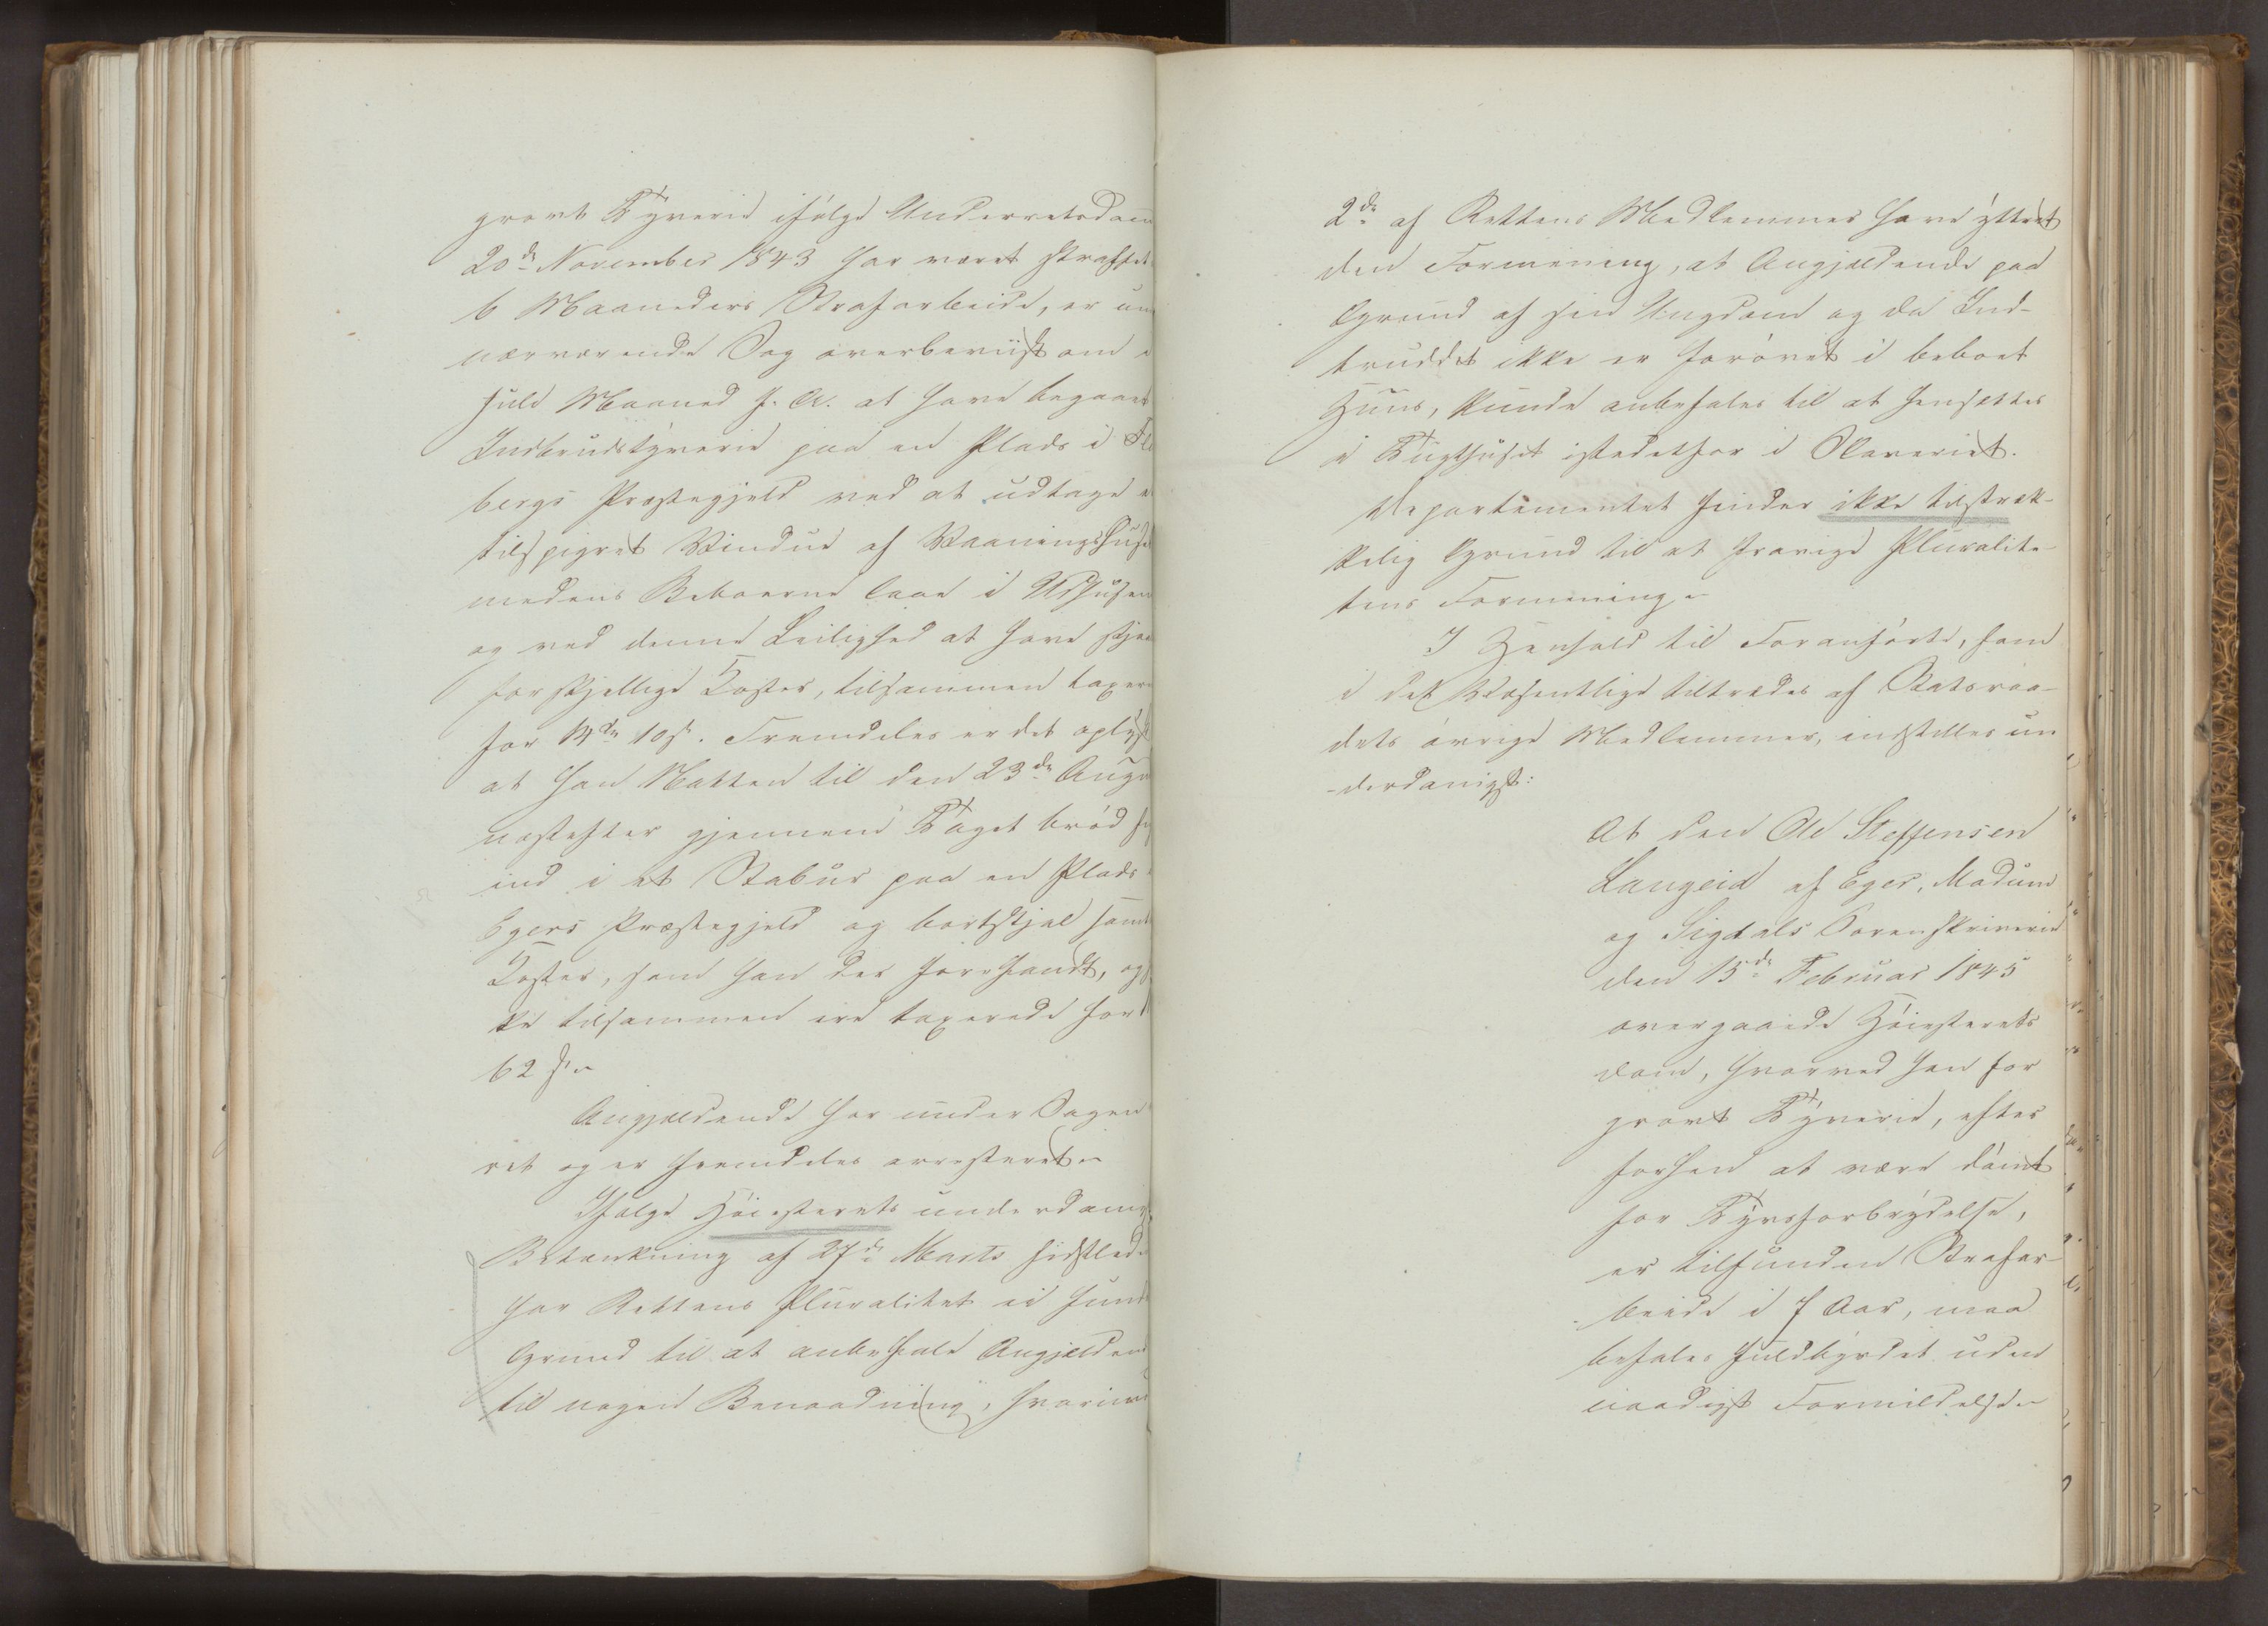 grovt Tyverie ifølge Underretsdom
20de November 1843 har været straffet
6 Maaneders Strafarbeide, er un
nærværende Sag overbeviist om i
Juli Maaned f. A. at have begaaet
Indbrudstyverie paa en Plads i Fle
bergs Præstegjeld ved at udtage e
tilspigret Vindue af Vaaningshuse
medens Beboerne laae i Udhusen
og ved denne Leilighed at have stjaa
forskjellige Koster, tilsammen taxere
for 10 s. Fremdeles er det oplyst
at han Natten til den 23de Augu
næstefter gjennem Taget brød si
ind i et Stabur paa en Plads
Egers Præstegjeld og bortstjal somt
Koster, som han der forefandt, og
ke tilsammen ere taxerede for
62 s.
Angjældende har under Sagen
ret og er fremdeles arresteret.
Ifølge Høiesterets underdanig
Betænkning af 27de Marts sidstled
har Rettens Pluralitet ei fund
Grund til at anbefale Angjælden
til nogen Benaadning, hvorimod
2de af Rettens Medlemmer have yttret
den Formening, at Angjældende paa
Grund af sin Ungdom og da Ind-
bruddet ikke er forøvet i beboet
Huus, kunde anbefales til at hensættes
i Tugthuset istedetfor i Slaveriet.
Departementet finder ikke tilstræk-
kelig Grund til at fravige Pluralite-
tens Formening.
I Henhold til Foranførte, som
i det Væsentlige tiltrædes af Statsraa-
dets øvrige Medlemmer, indstilles un
-derdanigst:
At den Ole Steffensen
Langeid af Eger, Modum
og Sigdals Sorenskriverie
den 15de Februar 1845
overgaaede Høiesterets
dom, hvorved han for
grovt Tyverie, efter
forhen at være dømt
for Tyvsforbrydelse,
er tilfunden Strafar-
beide i 7 Aar, maa
befales fuldbyrdet uden
naadigst Formildelse.